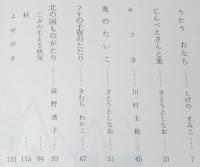 うたう おなら……しげの すみこ 7
じんべえさんと鬼……さとうとしなお 33
キツネ……川村主税 45
鬼のたいこ……さとうとしなお 51
フキの子のたたり……きむら わかこ 67
北の国ものがたり……滋野透子 93
こぶの生える病気…… 94
秋…… 115
よせがき…… 131